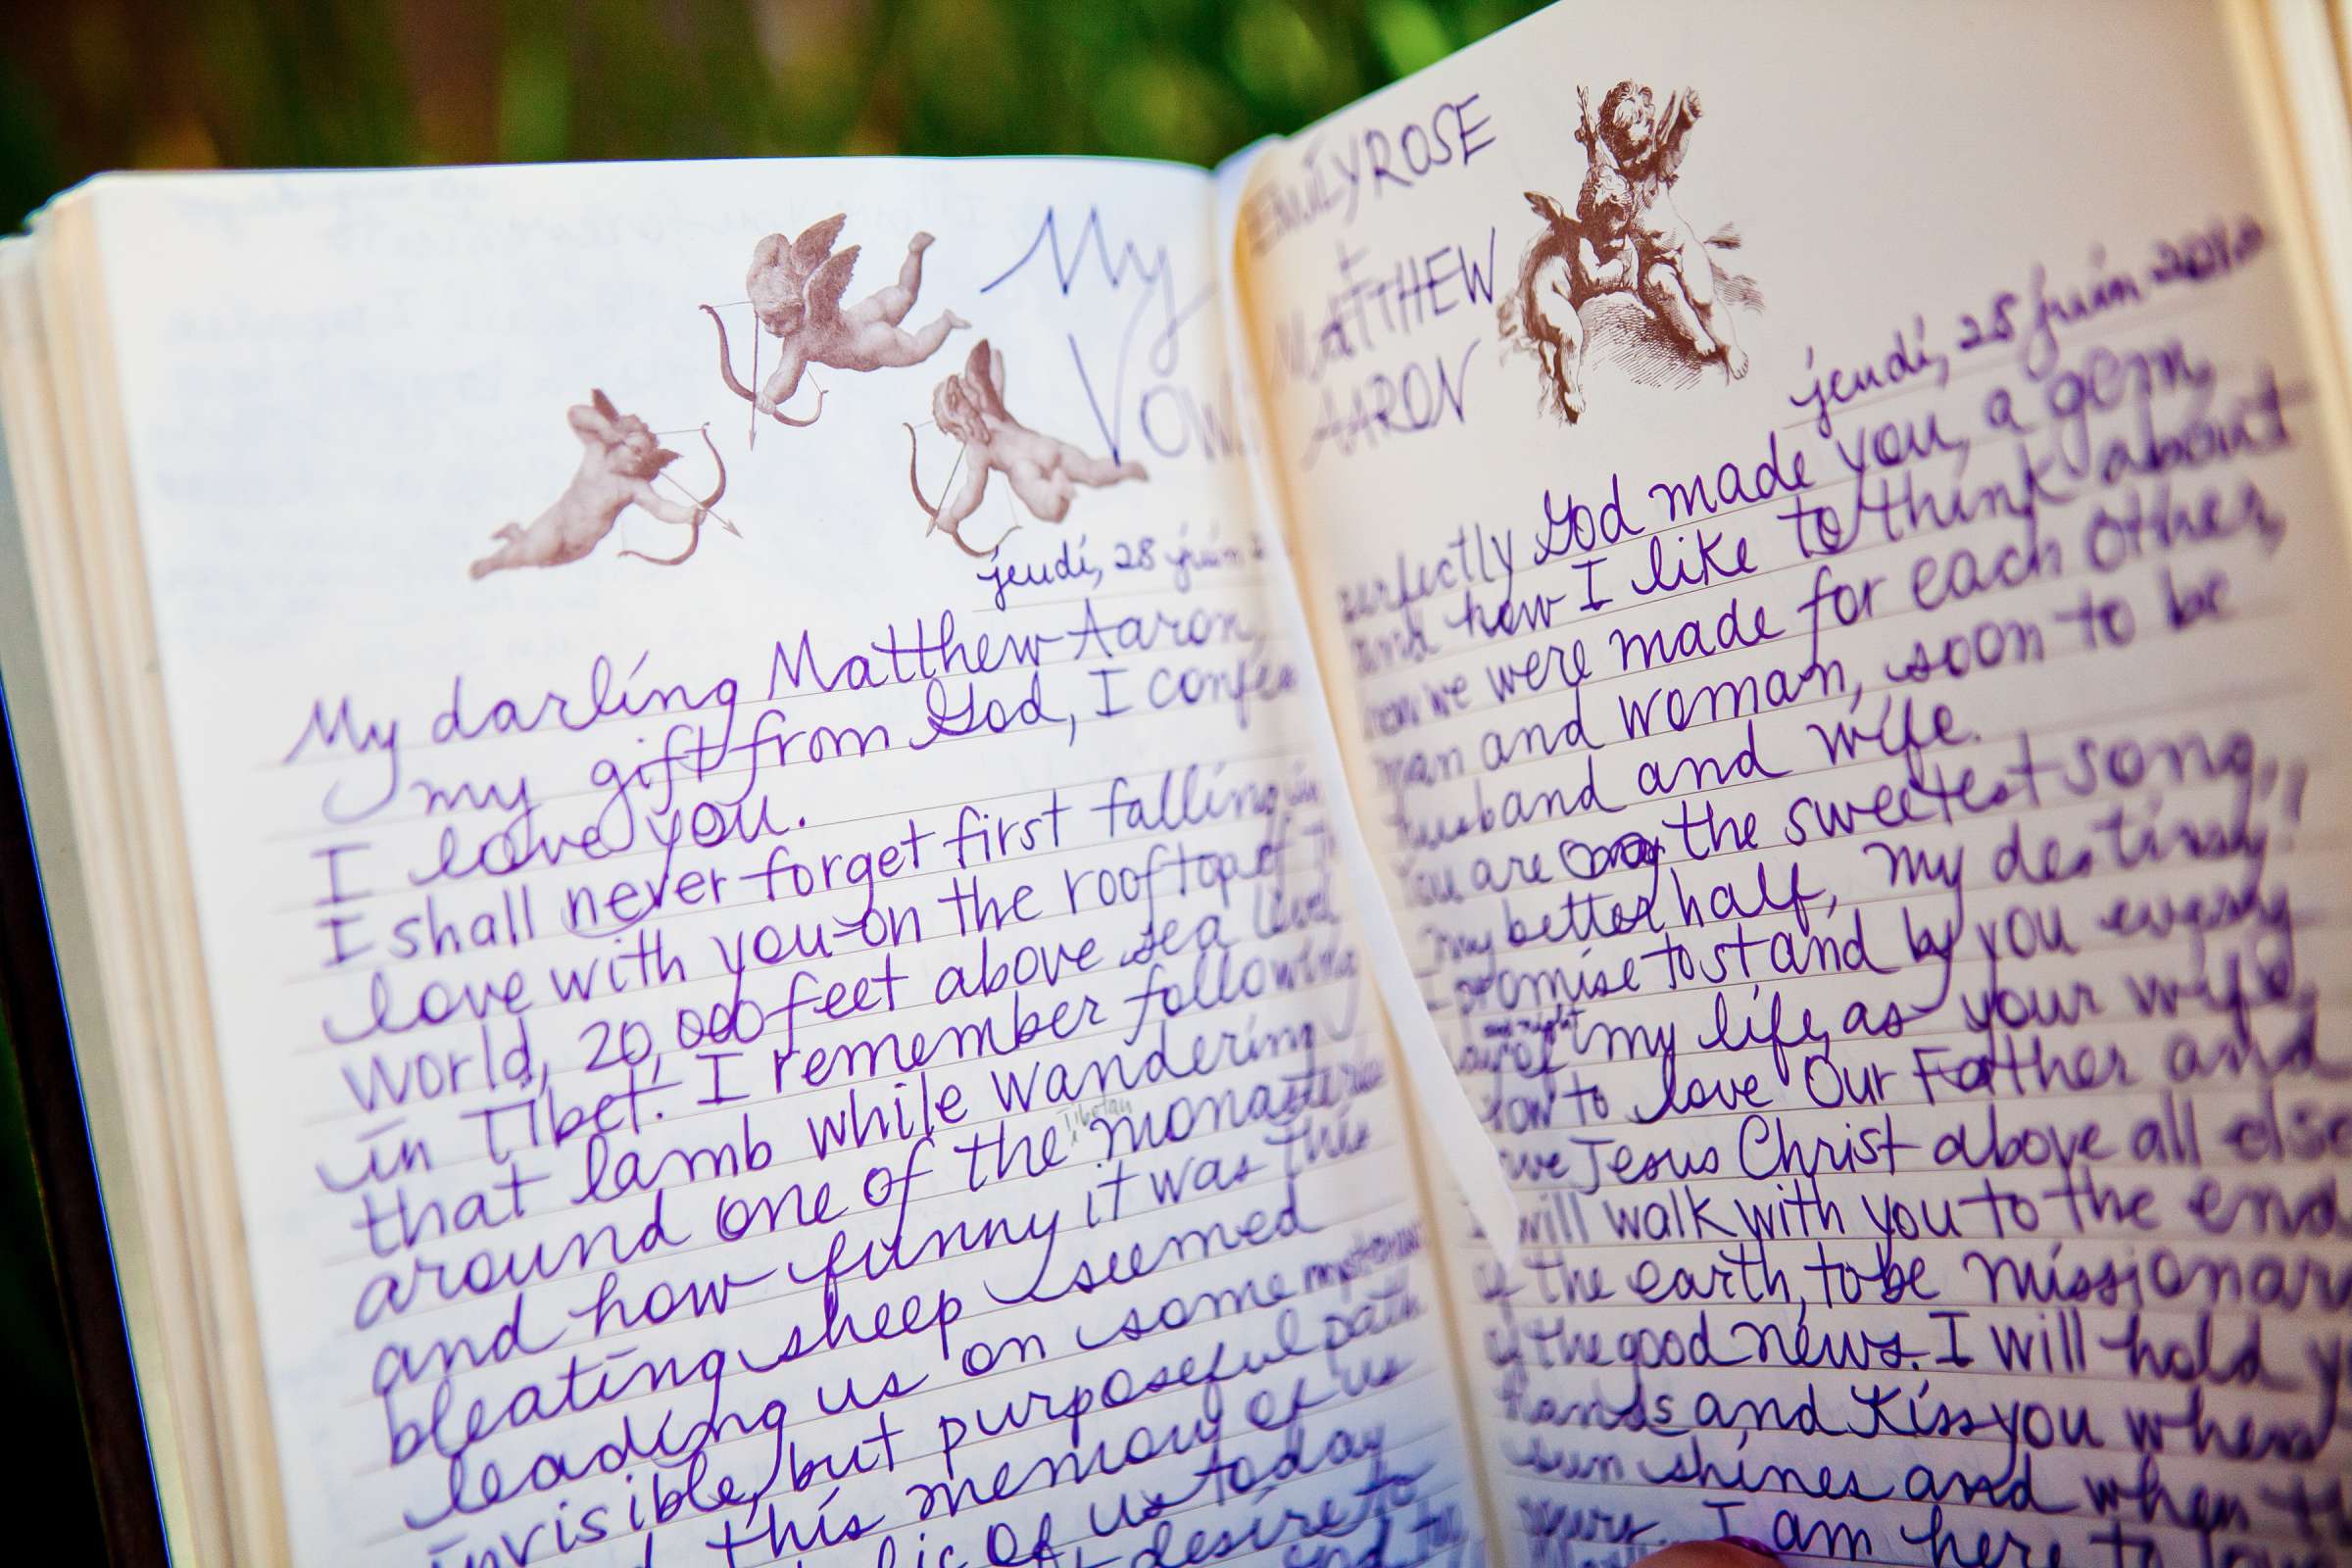 My
Vows
jeudi, 28 juin
My darling Matthew Aaron,
my gift from God, I confess
I love you.
I shall never forget first falling in
love with you on the rooftop of
World, 20,000 feet above sea level
in Tibet. I remember following
that lamb while wandering
around one of the Tibetan monasteries
and how funny it was this
bleating sheep seemed
leading us on some mysterious
invisible, but purposeful path
this memory of us
of us today
desire to
EMILY ROSE
+
MATTHEW
AARON
jeudi, 28 juin
perfectly God made you, a gem,
and how I like to think about
how we were made for each other,
man and woman, soon to be
husband and wife.
You are the sweetest song,
my better half, my destiny!
I promise to stand by you every
and night
of my life, as your wife,
vow to love Our Father and
Jesus Christ above all else
I will walk with you to the end
of the earth, to be missionar
of the good news. I will hold y
hands and kiss you when
sun shines and when th
I am here to